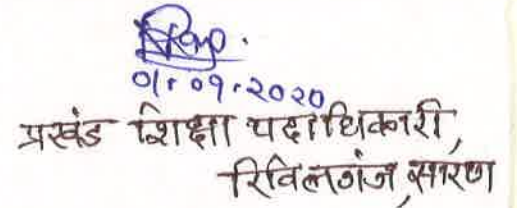 01.09.2020
प्रखंड शिक्षा पदाधिकारी,
रिविलगंज, सारण